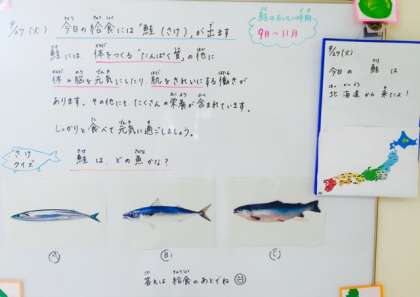 9/27(火) 今日の給食には「鮭(さけ)」が出ます
鮭には 体をつくる「たんぱく質」の他に
体の脳を元気にしたり、肌をきれいにする働きが
あります。その他にもたくさんの栄養が含まれています。
しっかりと食べて元気に過ごしましょう。
鮭のおいしい時期
9月〜11月
さけ
クイズ
鮭は どの魚かな?
Ⓐ
Ⓑ
Ⓒ
答えは 給食のあとでね
9/27(火)
今日の 鮭は
北海道から来たよ!